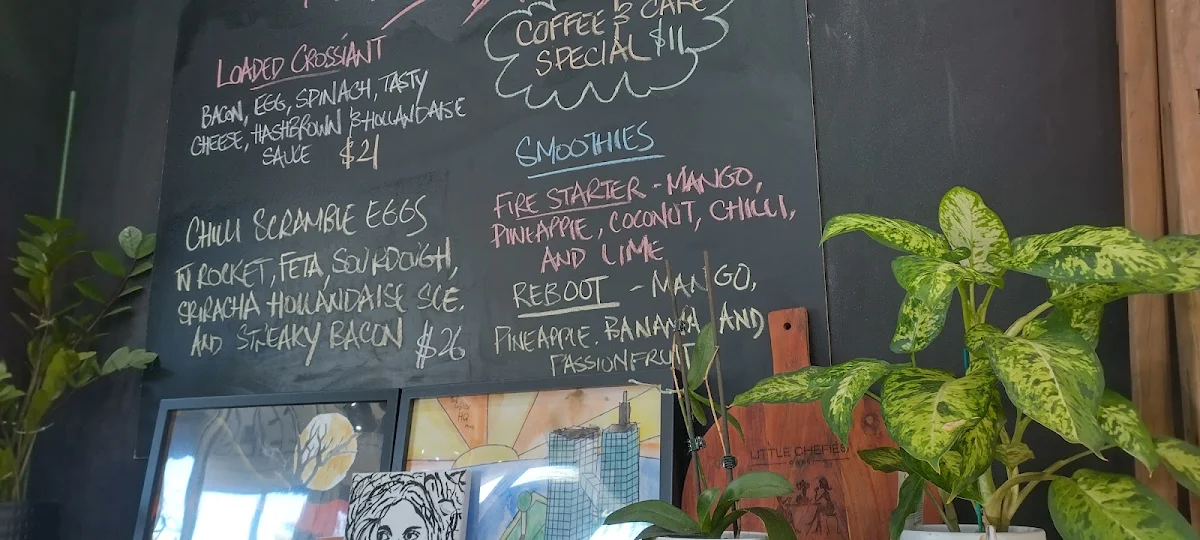 LOADED CROSSIANT
BACON, EGG, SPINACH, TASTY
CHEESE, HASHBROWN & HOLLANDAISE
SAUCE $21
CHILLI SCRAMBLE EGGS
W ROCKET, FETA, SOURDOUGH,
SRIRACHA HOLLANDAISE SCE.
AND STREAKY BACON $26
COFFEE & CAKE
SPECIAL $11
SMOOTHIES
FIRE STARTER - MANGO,
PINEAPPLE, COCONUT, CHILLI,
AND LIME
REBOOT - MANGO,
PINEAPPLE. BANANA AND
PASSIONFRUIT
LITTLE CHEFIES